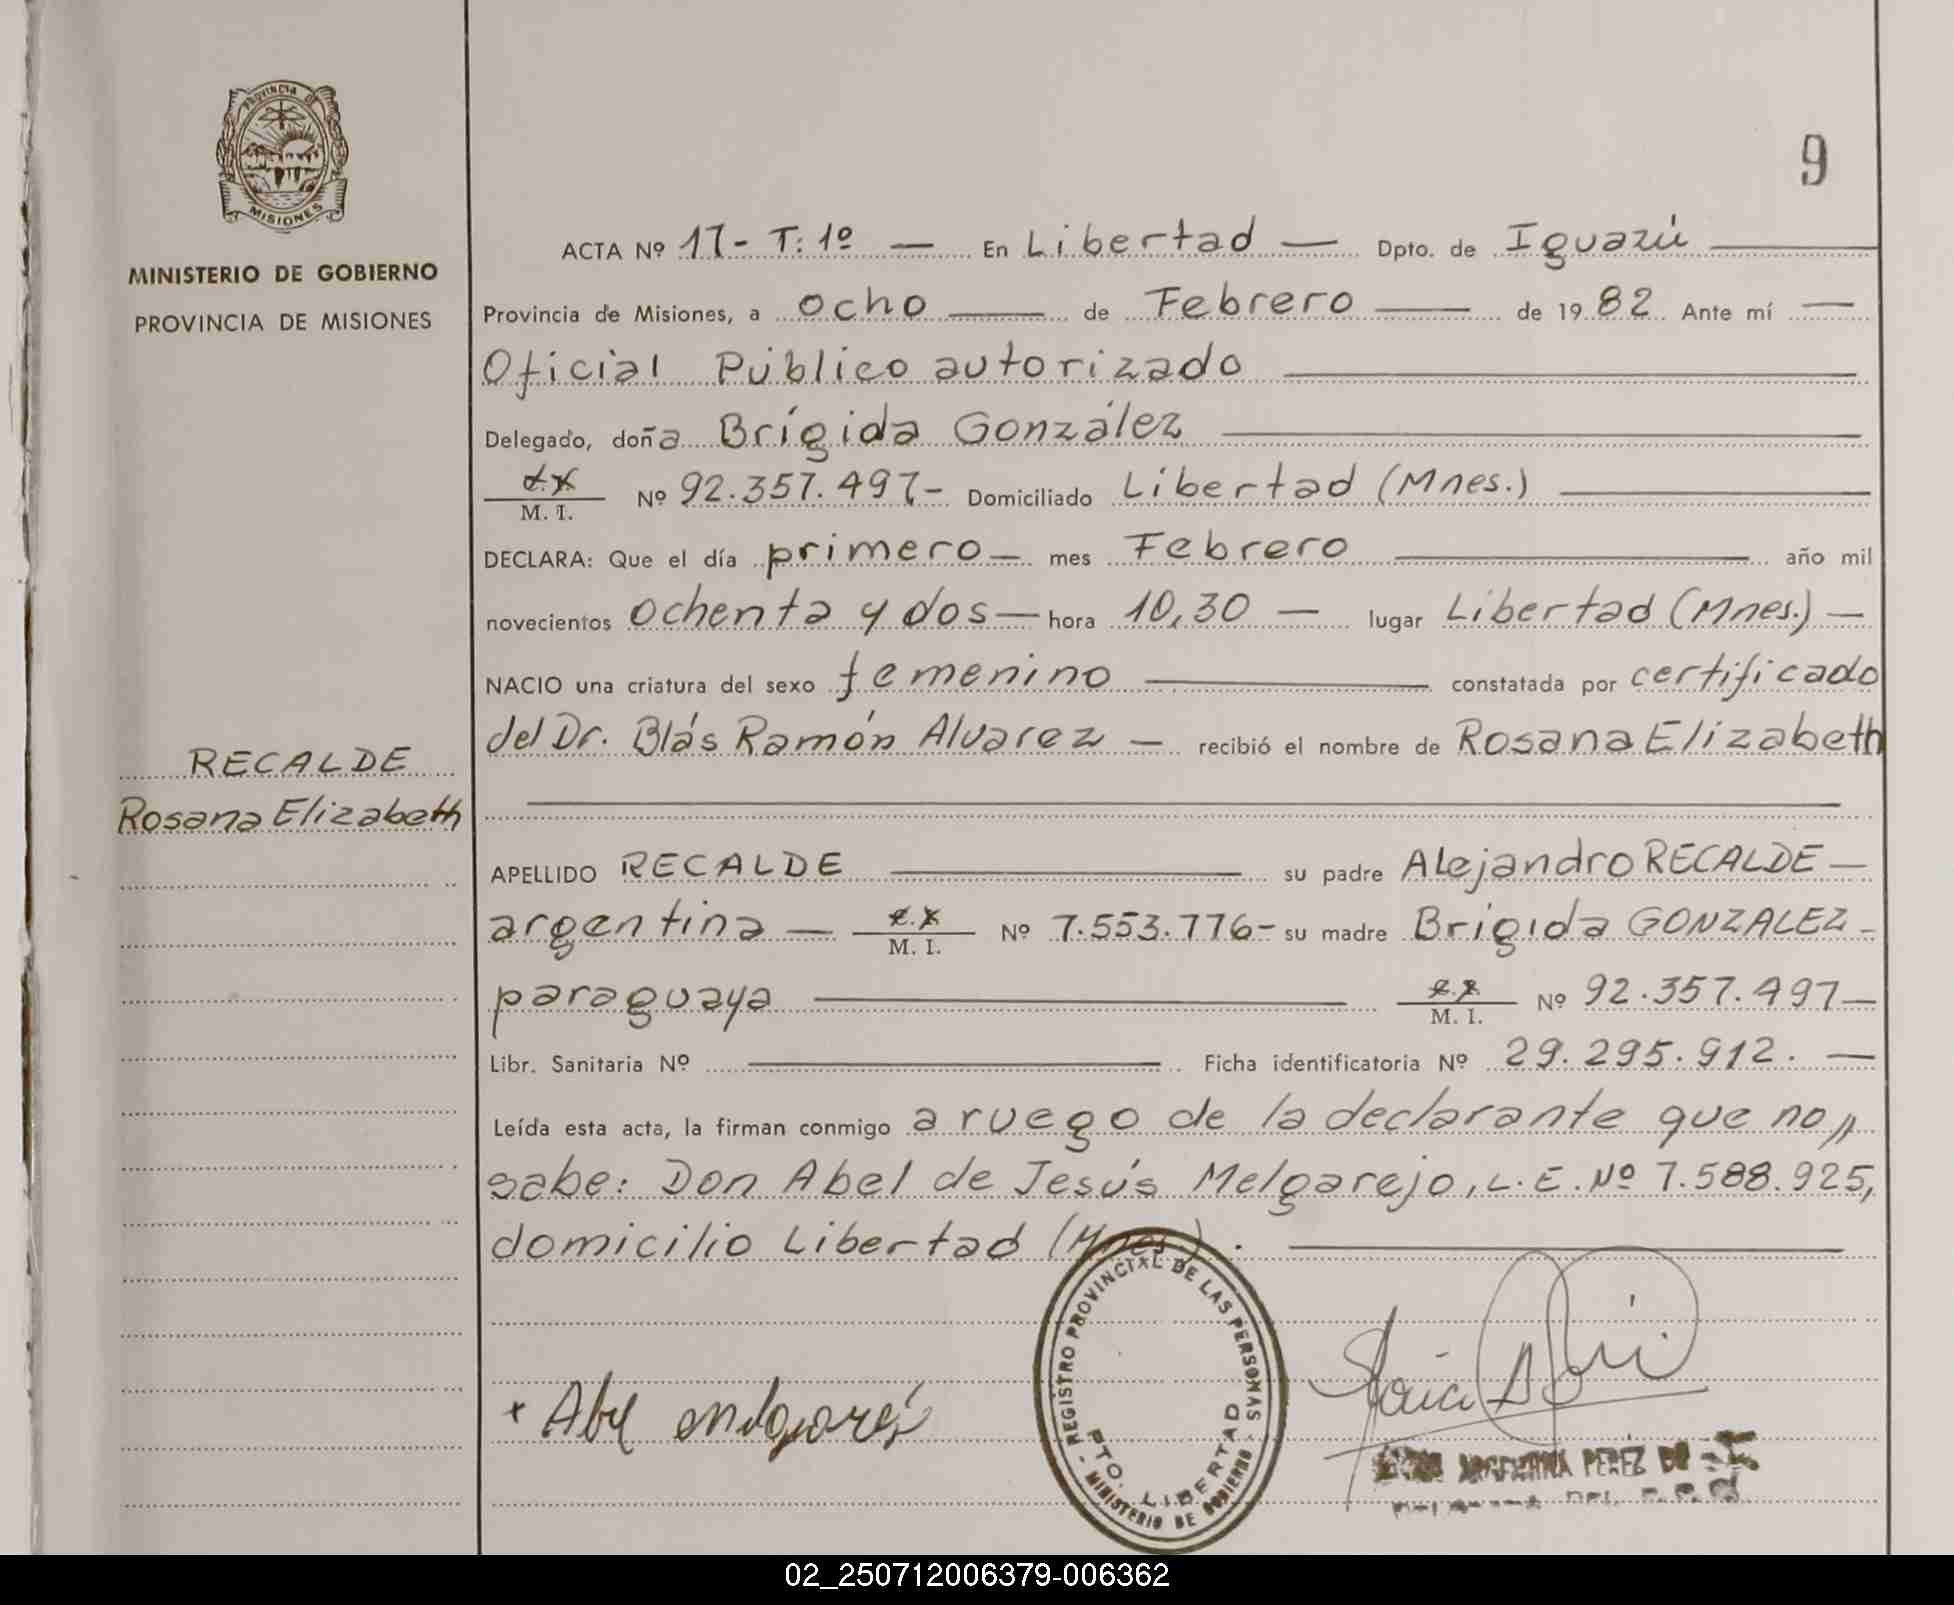 9
PROVINCIA DE
MISIONES
MINISTERIO DE GOBIERNO
PROVINCIA DE MISIONES
RECALDE
Rosana Elizabeth
ACTA Nº 17- T: 1º — En Libertad — Dpto. de Iguazú
Provincia de Misiones, a ocho — de Febrero — de 1982 Ante mí —
Oficial Público autorizado
Delegado, doña Brígida González
M. I. Nº 92.357.497- Domiciliado Libertad (Mnes.)
DECLARA: Que el día primero — mes Febrero — año mil
novecientos ochenta y dos — hora 10,30 — lugar Libertad (Mnes.) —
NACIO una criatura del sexo femenino — constatada por certificado
del Dr. Blás Ramón Alvarez — recibió el nombre de Rosana Elizabeth
APELLIDO RECALDE — su padre Alejandro RECALDE —
argentina — M. I. Nº 7.553.776- su madre Brígida GONZALEZ -
paraguaya — M. I. Nº 92.357.497 —
Libr. Sanitaria Nº — Ficha identificatoria Nº 29.295.912. —
Leída esta acta, la firman conmigo a ruego de la declarante que no,,
sabe: Don Abel de Jesús Melgarejo, L.E. Nº 7.588.925,
domicilio Libertad (Mnes.).
REGISTRO PROVINCIAL DE LAS PERSONAS
PTO. LIBERTAD
- MINISTERIO DE GOBIERNO -
PEREZ DE
02_250712006379-006362